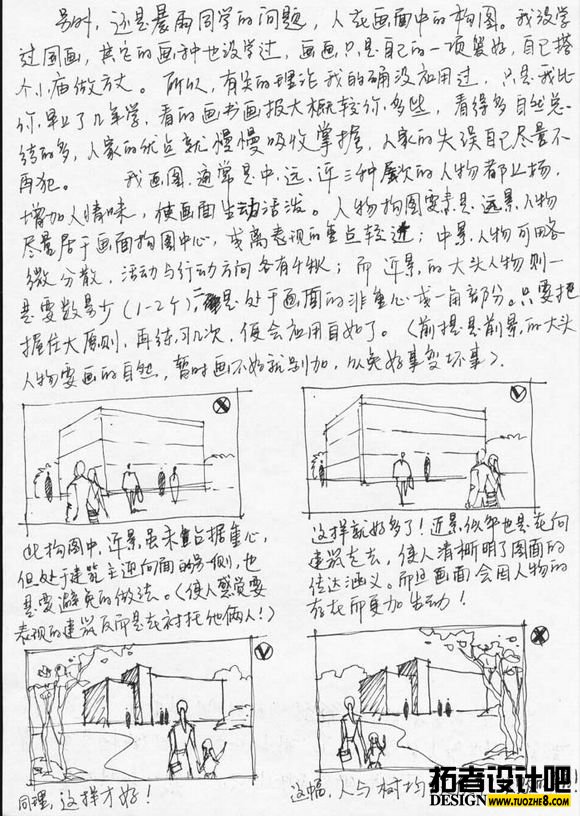 另外,还是暴雨同学的问题,人在画面中的构图。我没学
过国画,其它的画种也没学过,画画只是自己的一项爱好,自己搭
个小庙做方丈。所以,有关的理论我的确没应用过,只是我比
你早了几年学,看的画书画报大概较你多些,看得多自然总
结的多,人家的优点就慢慢吸收掌握,人家的失误自己尽量不
再犯。 我画图通常是中、远、近三种层次的人物都上场,
增加人情味,使画面生动活泼。人物构图要素是:远景,人物
尽量居于画面构图中心,或离表现的重点较近;中景,人物可略
微分散,活动与行动方向各有千秋;而近景,的大头人物则一
是要数量少(1-2个),二是处于画面的非重心或一角部分。只要把
握住大原则,再练习几次,便会应用自如了。(前提是前景,的大头
人物要画的自然,暂时画不好就别加,以免好事变坏事)。
此构图中,近景虽未占据重心,
但处于建筑主迎向面的另一侧,也
是要避免的做法。(使人感觉要
表现的建筑反而是在衬托他俩人!)
这样就好多了!近景,似乎也是在向
建筑走去,使人清晰明了图面的
传达涵义。而且画面会因人物的
存在而更加生动!
同理,这样才好!
这幅,人与树均
拓者设计吧
DESIGN WWW.TUOZHE8.COM